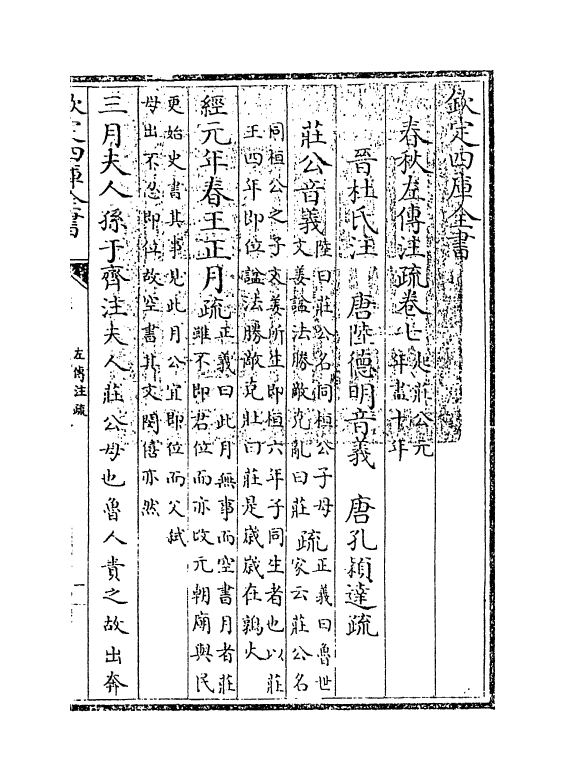 欽定四庫全書
春秋左傳注疏卷七
起莊公元
年盡十年
晉杜氏注 唐陸德明音義 唐孔穎達疏
莊公音義
陸曰莊公名同桓公子母
文姜謚法勝敵克亂曰莊
疏
正義曰魯世
家云莊公名
同桓公之子文姜所生即桓六年子同生者也以莊
王四年即位謚法勝敵克壯曰莊是歲歲在鶉火
經元年春王正月疏
正義曰此月無事而空書月者莊
雖不即君位而亦改元朝廟與民
更始史書其事見此月公宜即位而父弒
母出不忍即位故空書其文閔僖亦然
三月夫人孫于齊注夫人莊公母也魯人責之故出奔
欽定四庫全書
左傳注疏
一